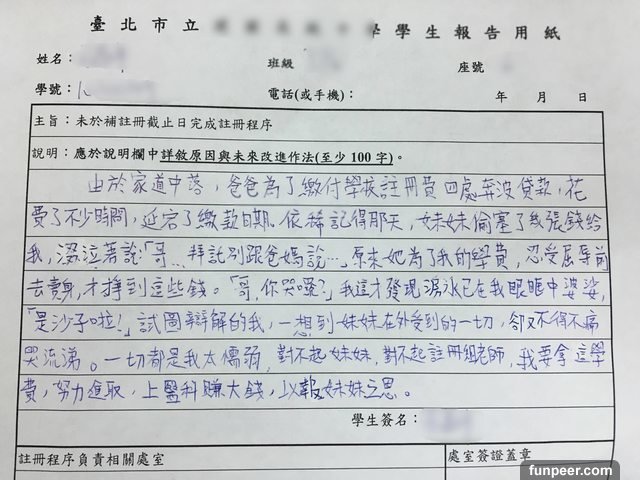 臺北市立 學學生報告用紙
姓名： 班級 座號
學號： 電話(或手機)： 年 月 日
主旨：未於補註冊截止日完成註冊程序
說明：應於說明欄中詳敘原因與未來改進作法(至少 100 字)。
由於家道中落，爸爸為了繳付學校註冊費四處奔波貸款，花
費了不少時間，延宕了繳款日期。依稀記得那天，妹妹偷塞了幾張錢給
我，啜泣著說：「哥…拜託別跟爸媽說…」原來她為了我的學費，忍受屈辱前
去賣身，才掙到這些錢。「哥，你哭囉？」我這才發現淚水已在我眼眶中婆娑，
「是沙子啦！」試圖辯解的我，一想到妹妹在外受到的一切，卻又不得不痛
哭流涕。一切都是我太懦弱，對不起妹妹，對不起註冊組老師，我要拿這學
費，努力進取，上醫科賺大錢，以報妹妹之恩。
學生簽名：
註冊程序負責相關處室 處室簽證蓋章
funpeer.com